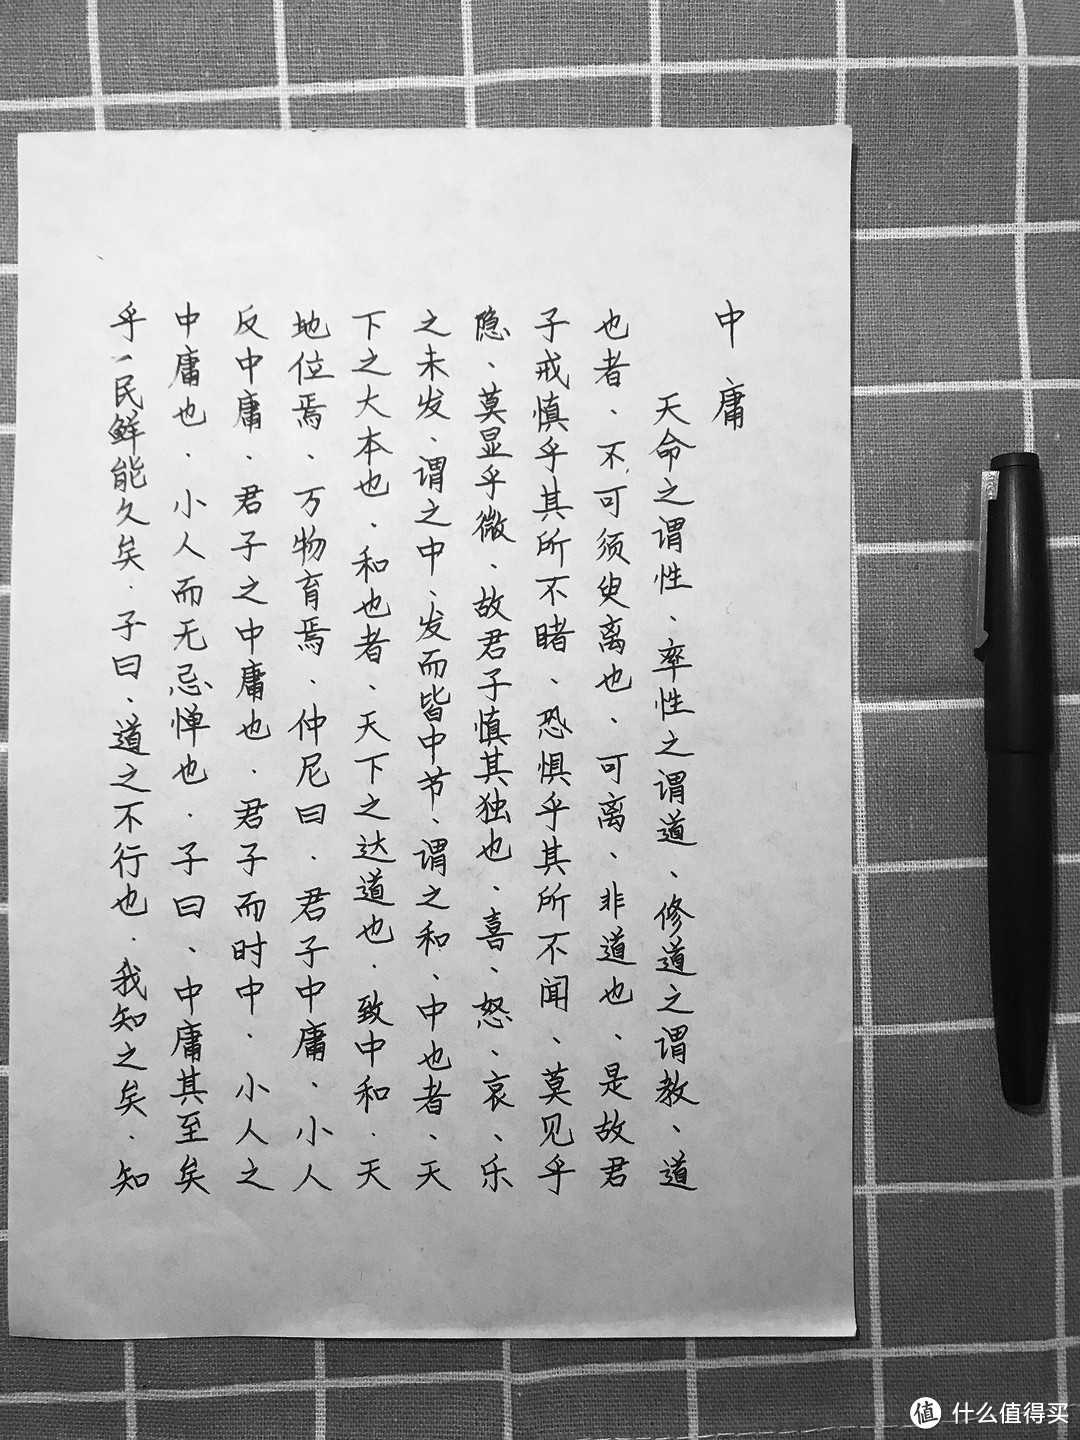 中庸
天命之谓性、率性之谓道、修道之谓教、道
也者、不可须臾离也、可离、非道也、是故君
子戒慎乎其所不睹、恐惧乎其所不闻、莫见乎
隐、莫显乎微、故君子慎其独也、喜、怒、哀、乐
之未发、谓之中、发而皆中节、谓之和、中也者、天
下之大本也、和也者、天下之达道也.致中和.天
地位焉、万物育焉.仲尼曰.君子中庸、小人
反中庸.君子之中庸也.君子而时中.小人之
中庸也.小人而无忌惮也.子曰、中庸其至矣
乎、民鲜能久矣.子曰、道之不行也.我知之矣.知
值 什么值得买